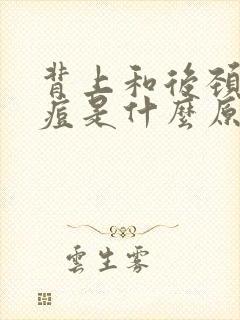 背上和後頸
痘是什麼原
雲生霧